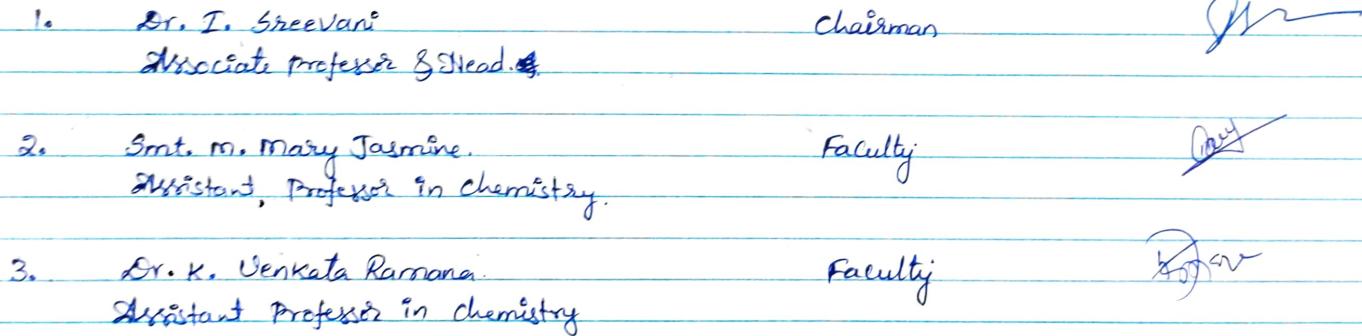 1. Dr. I. Sreevani Chairman
Associate Professor & Head.
2. Smt. M. Mary Jasmine. Faculty
Assistant, Professor in chemistry.
3. Dr. K. Venkata Ramana. Faculty
Assistant Professor in chemistry